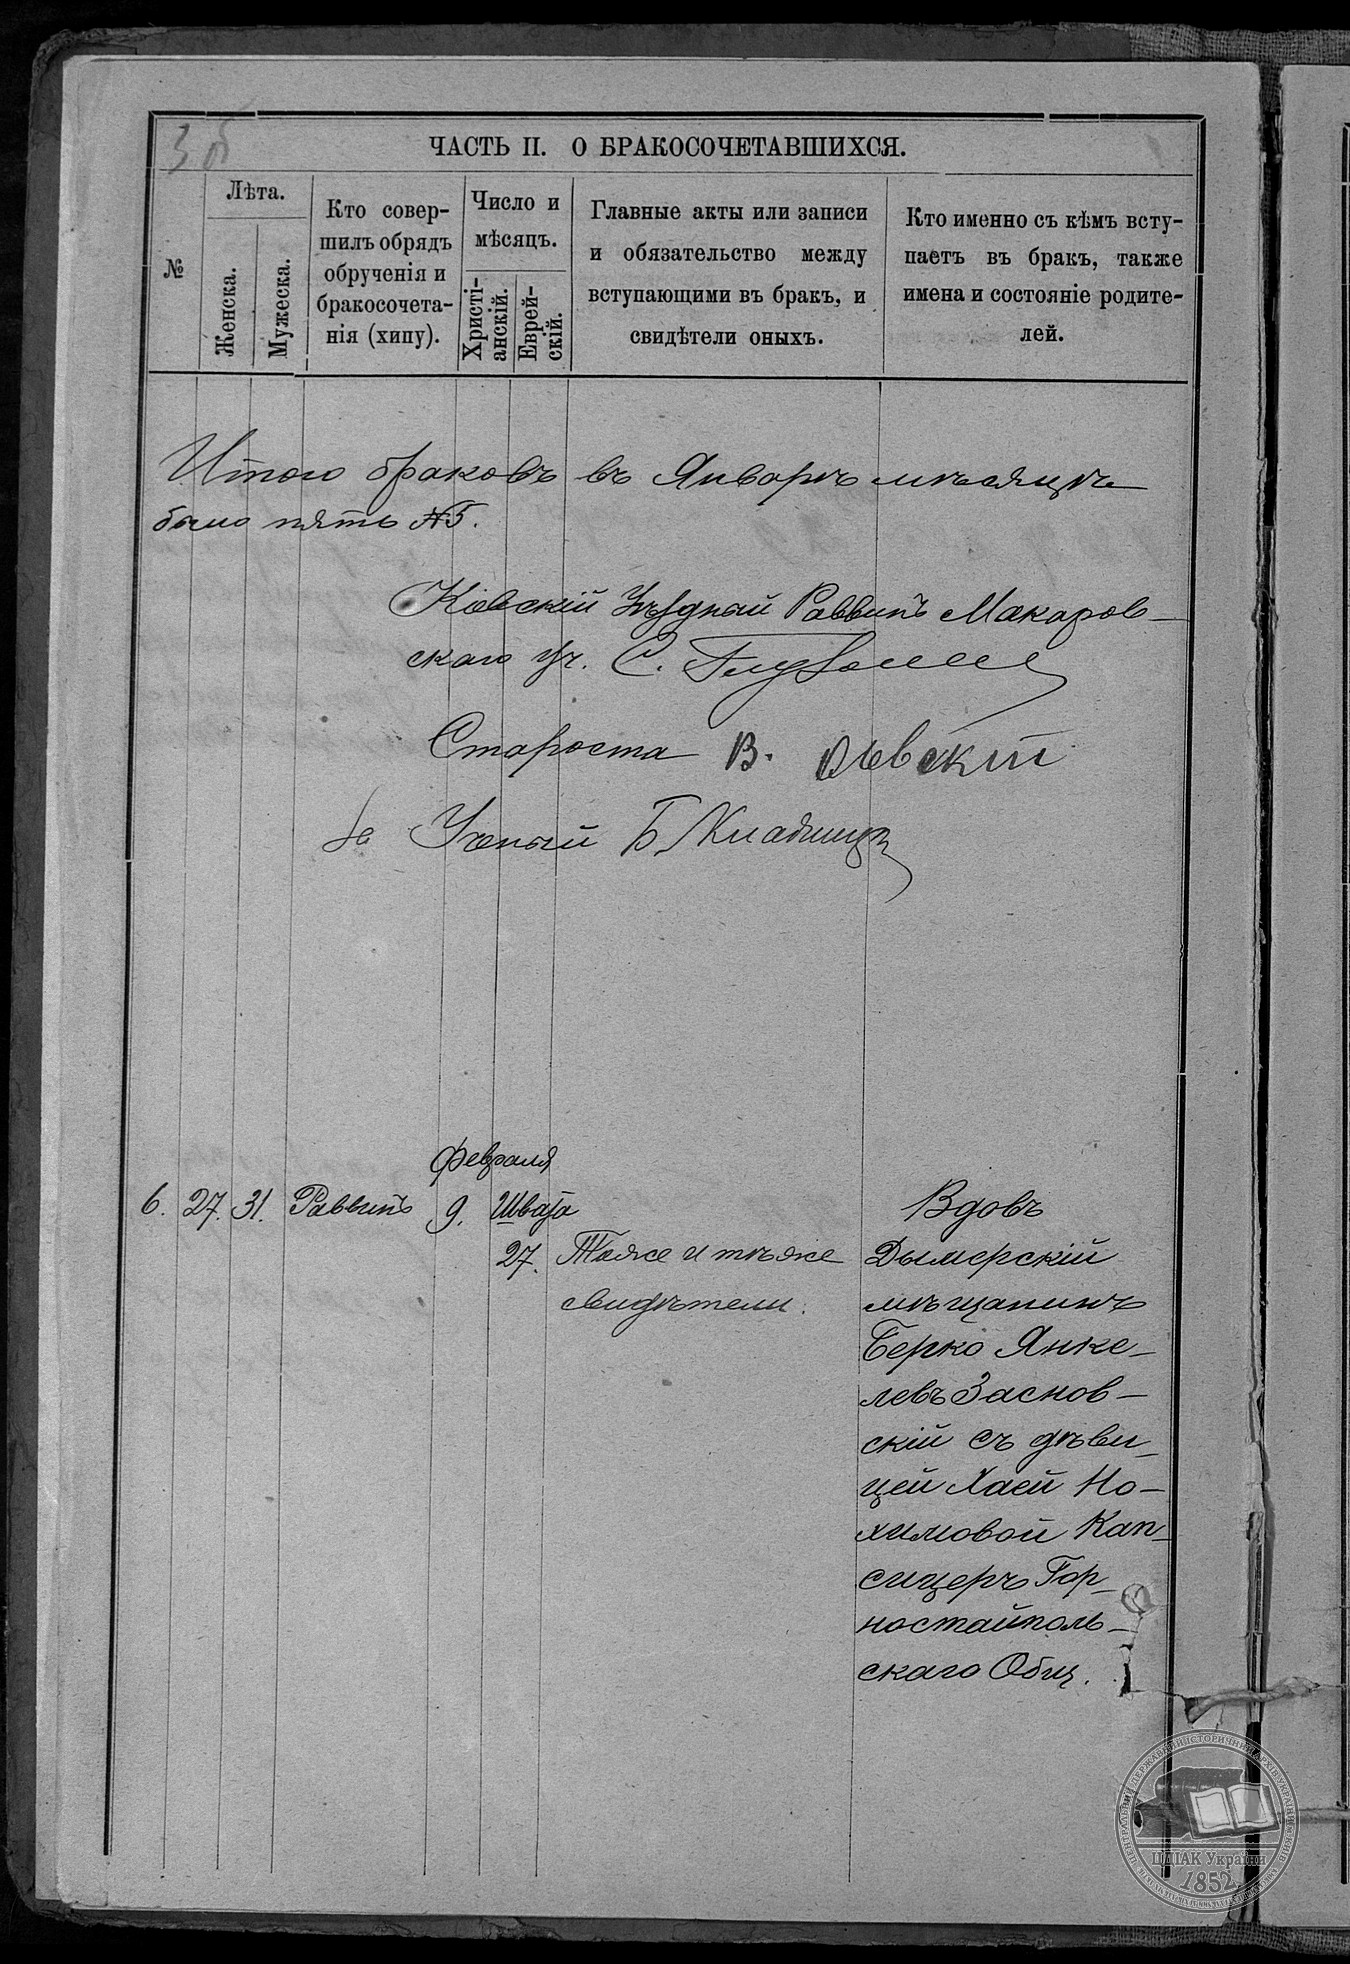 3 об
ЧАСТЬ II. О БРАКОСОЧЕТАВШИХСЯ.
№
Лѣта.
Женска.
Мужеска.
Кто совер-
шилъ обрядъ
обрученія и
бракосочета-
нія (хипу).
Число и
мѣсяцъ.
Христі-
анскій.
Еврей-
скій.
Главные акты или записи
и обязательство между
вступающими въ бракъ, и
свидѣтели оныхъ.
Кто именно съ кѣмъ всту-
паетъ въ бракъ, также
имена и состояніе родите-
лей.
Итого браковъ въ Январѣ мѣсяцѣ
было пять №5.
Кіевскій Уѣздный Раввинъ Макаров-
скаго уч. С.
Староста В. Львскій
Ученый Б.
Февраля
6. 27. 31. Раввинъ 9. Швата
27. Тоже и тѣже
свидѣтели.
Вдовъ
Дымерскій
мѣщанинъ
Берко Янке-
левъ Заснов-
скій съ дѣви-
цей Хаей Но-
химовой Кап-
сицеръ Гор-
ностайполь-
скаго Общ.
ЦЕНТРАЛЬНИЙ ДЕРЖАВНИЙ ІСТОРИЧНИЙ АРХІВ УКРАЇНИ, М. КИЇВ
ЦДІАК України
1852